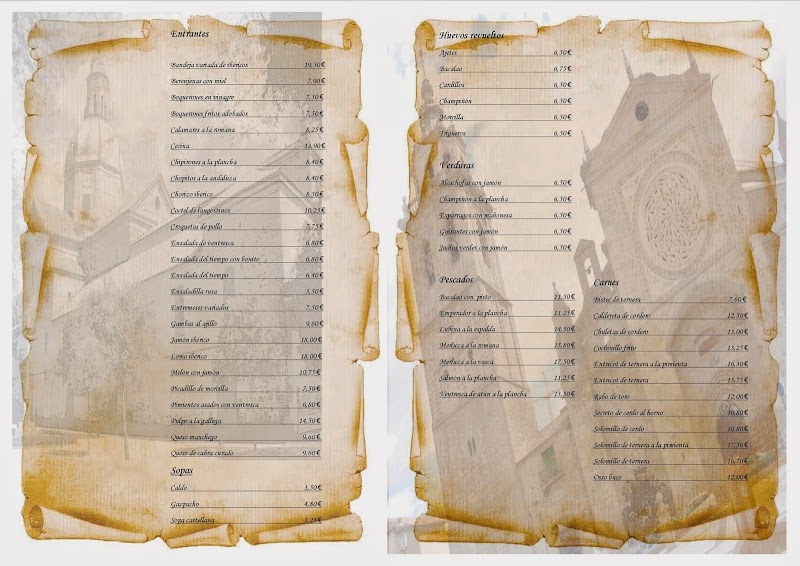 Entrantes
Bandeja variada de ibéricos 19,50€
Berenjenas con miel 7,90€
Boquerones en vinagre 7,50€
Boquerones fritos adobados 7,50€
Calamares a la romana 8,25€
Cecina 13,90€
Chipirones a la plancha 8,40€
Chopitos a la andaluza 8,40€
Chorizo ibérico 8,50€
Coctel de langostinos 10,25€
Croquetas de pollo 7,75€
Ensalada de ventresca 6,80€
Ensalada del tiempo con bonito 6,80€
Ensalada del tiempo 6,40€
Ensaladilla rusa 5,50€
Entremeses variados 7,50€
Gambas al ajillo 9,60€
Jamón ibérico 18,00€
Lomo ibérico 18,00€
Melón con jamón 10,75€
Picadillo de morcilla 7,50€
Pimientos asados con ventresca 6,80€
Pulpo a la gallega 14,50€
Queso manchego 9,60€
Queso de cabra curado 9,60€
Sopas
Caldo 3,50€
Gazpacho 4,80€
Sopa castellana 5,25€
Huevos revueltos
Ajetes 6,50€
Bacalao 6,75€
Cardillos 6,50€
Champiñón 6,50€
Morcilla 6,50€
Trigueros 6,50€
Verduras
Alcachofas con jamón 6,50€
Champiñon a la plancha 6,50€
Espárragos con mahonesa 6,50€
Guisantes con jamón 6,50€
Judías verdes con jamón 6,50€
Pescados
Bacalao con pisto 11,50€
Emperador a la plancha 11,25€
Lubina a la espalda 14,50€
Merluza a la romana 15,80€
Merluza a la vasca 17,50€
Salmón a la plancha 11,25€
Ventresca de atún a la plancha 13,80€
Carnes
Bistec de ternera 7,60€
Caldereta de cordero 12,50€
Chuletas de cordero 13,00€
Cochinillo frito 13,25€
Entrecot de ternera a la pimienta 16,50€
Entrecot de ternera 15,75€
Rabo de toro 12,00€
Secreto de cerdo al horno 10,80€
Solomillo de cerdo 10,80€
Solomillo de ternera a la pimienta 17,50€
Solomillo de ternera 16,70€
Osso buco 12,00€